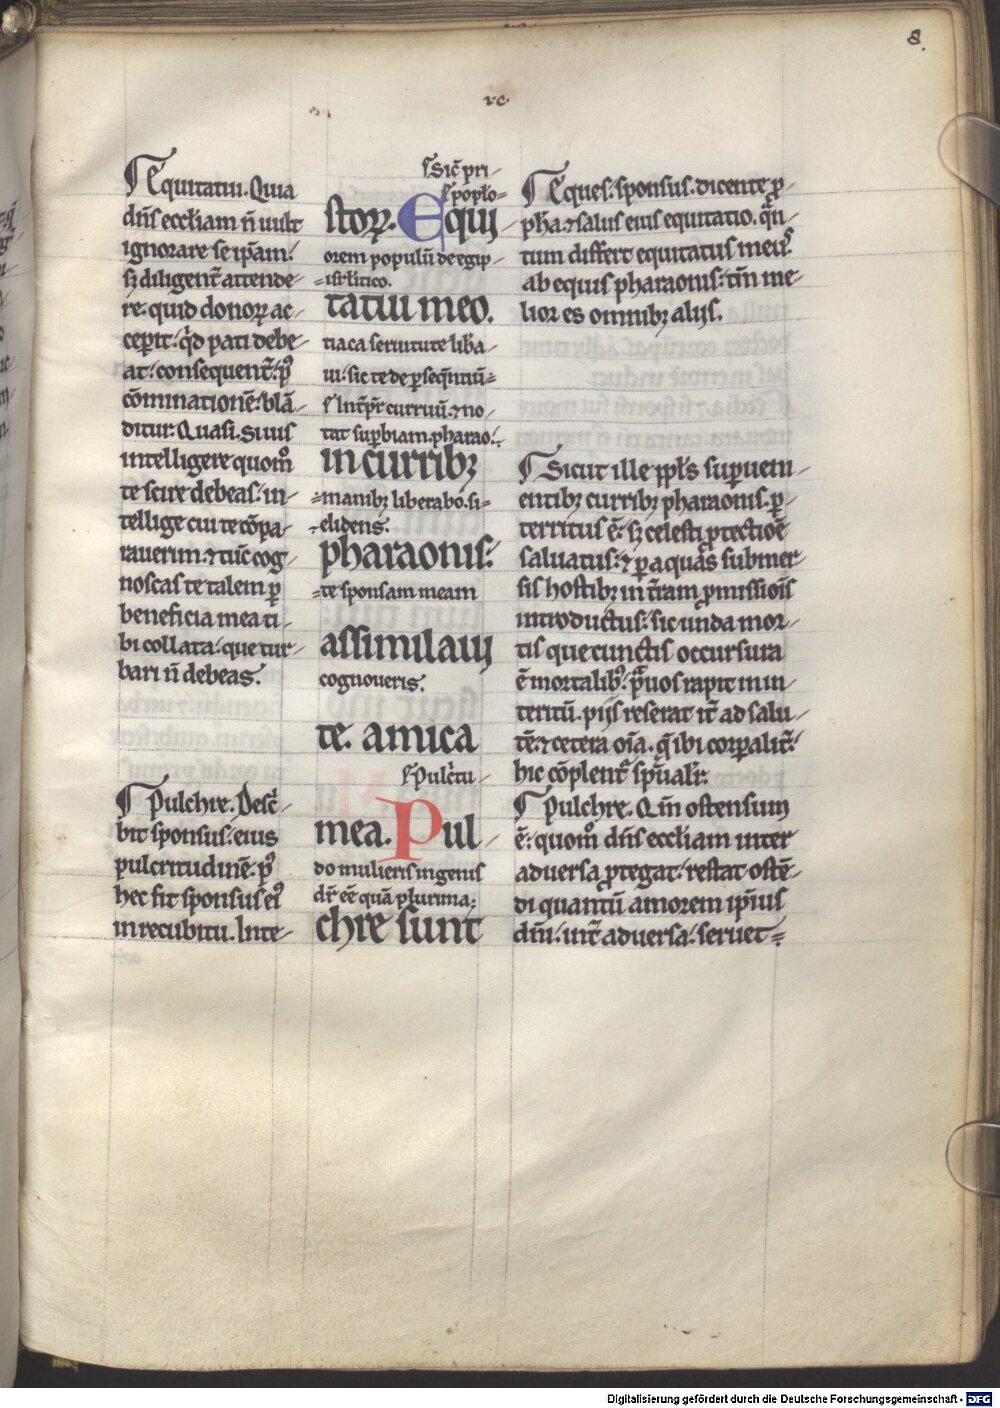 8.
Equitatui. Quia
dn̄s eccl̄iam n̄ uult
ignorare se ip̄am:
sꝫ diligent̄ attende-
re: quid donoꝝ ac-
cepit: qd pati debe-
at: consequent̄: pꝰ
cōminationē: blā-
ditur: Quasi. Si uis
intelligere quom̊
te scire debeas: in-
tellige cui te cōpa-
rauerim: ⁊ tūc cog-
noscas te talem ꝑ
beneficia mea ti-
bi collata: que tur-
bari n̄ debeas.
Pulchre. Desc̄-
bit sponsus: eius
pulcritudinē: pꝰ
hec fit sponsus eiꝰ
in recubitu. Inte-
Sic̄ pri-
popl̄o-
stoꝝ. Equi-
orem populū de egip-
isrl̄itico.
tatui meo.
tiaca seruitute lib̄a-
ui: sic te de ꝑseq̄ntiū
Int̄p̄r curruū. ⁊ no-
tat suꝑbiam. pharao.
in curribꝫ
manibꝫ liberabo. si-
elidens.
pharaonis:
te sponsam meam
assimilaui
cognoueris.
te. amica
Pulc̄tu-
mea. Pul-
do mulieris in genis
dr̄ ēē quā plurima:
chre sunt
Eques. sponsus. dicente ꝓ-
ph̄a. ⁊ salus eius equitatio. q̄n-
tum differt equitatus meus
ab equis pharaonis: tm̄ me-
lior es omnibꝫ alijs.
Sicut ille ppl̄s suꝑueni-
entibꝫ curribꝫ pharaonis. ꝑ-
territus ē: sꝫ celesti ꝓtectioē
saluatus: ⁊ ꝑ aquās submer-
sis hostibꝫ in t̄ram ꝓmissiōis
introductus: sic unda mor-
tis que cunctis occursura
ē mortalibꝰ: prauos rapit in in-
teritū. pijs reserat it̄ ad salu-
tē: ⁊ cetera oīa. q̄ ibi corꝑalit̄:
hic cōplent̄ sp̄ualr̄:
Pulchre. Qm̄ ostensum
ē: quom̊ dn̄s eccl̄iam inter
aduersa ꝓtegat: restat ostē-
di quantū amorem ip̄ius
dn̄i: int̄ aduersa: seruet
Digitalisierung gefördert durch die Deutsche Forschungsgemeinschaft - DFG